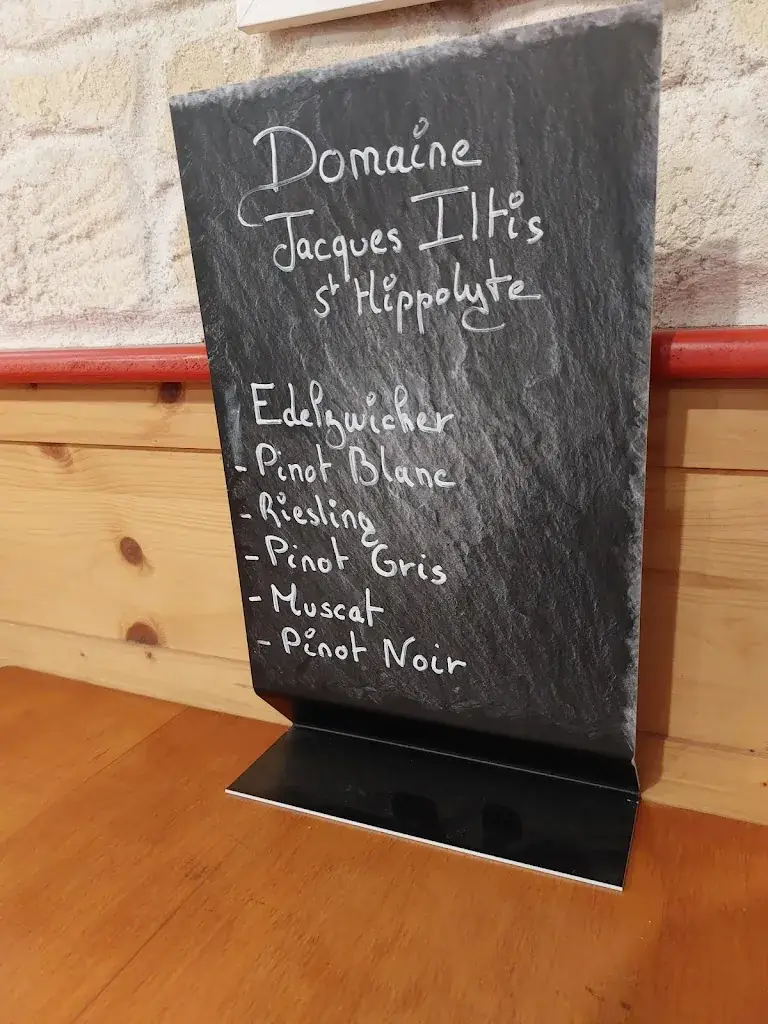 Domaine
Jacques Iltis
St Hippolyte
Edelzwicher
- Pinot Blanc
- Riesling
- Pinot Gris
- Muscat
- Pinot Noir